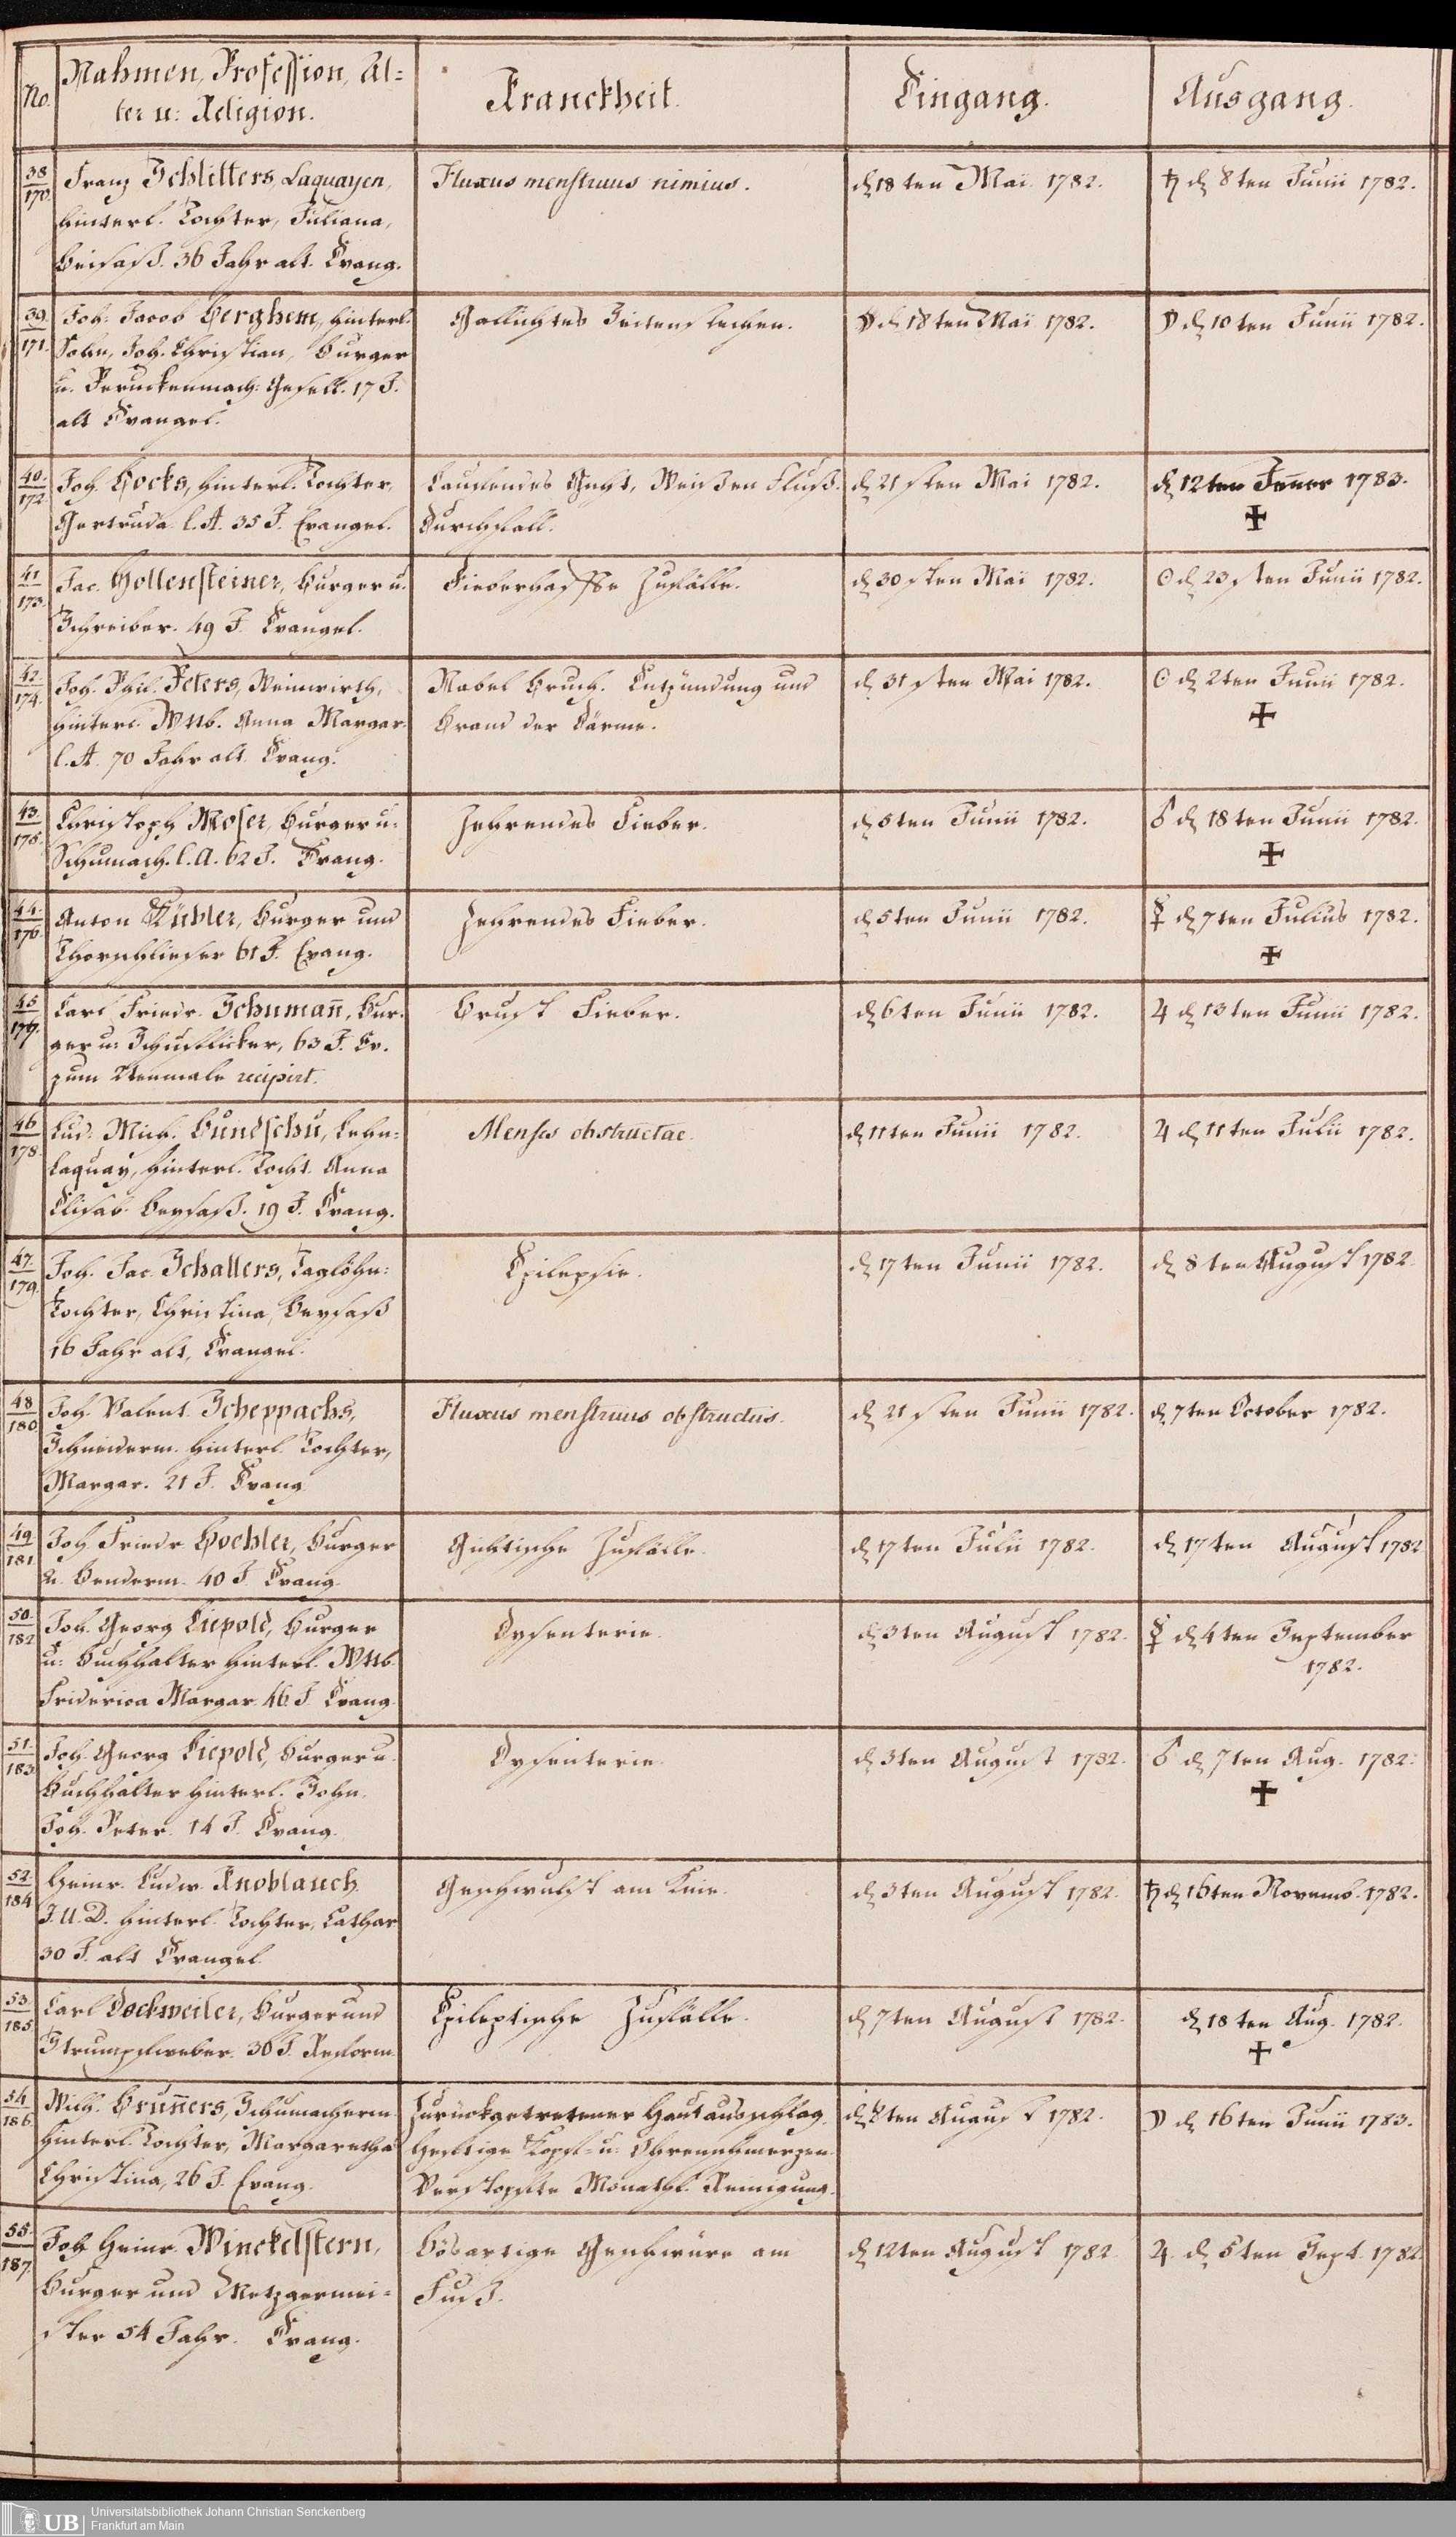 No.
Nahmen, Profession, Al=
ter u: Religion.
Kranckheit.
Eingang.
Ausgang.
38
170.
Franz Schlitters, Laquayen,
hinterl. Tochter, Juliana,
Beisaß. 36 Jahr alt. Evang.
Fluxus menstruus nimius.
d 18ten Mai 1782.
♄ d 8ten Junii 1782.
39.
171.
Joh: Jacob Berghem, hinterl.
Sohn, Joh. Christian, Burger
u. Peruckenmach: Gesell. 17 J.
alt Evangel.
Gallichtes Seitenstechen.
☽ d 18ten Mai 1782.
☽ d 10ten Junii 1782.
40.
172
Joh. Bocks, hinterl. Tochter,
Gertruda l. A. 35 J. Evangel.
Laufendes Gicht, Weissen Fluß.
Durchfall.
d 21sten Mai 1782.
d 12ten Jenner 1783.
✝
41
173.
Jac. Hollensteiner, Burger u.
Schreiber. 49 J. Evangel.
Fieberhaffte Zufälle.
d 30sten Mai 1782.
☉ d 23sten Junii 1782.
42
174.
Joh. Phil. Peters, Weinwirth,
hinterl. Wttb. Anna Margar.
l. A. 70 Jahr alt. Evang.
Nabel Bruch. Entzündung und
Brand der Därme.
d 31sten Mai 1782.
☉ d 2ten Junii 1782.
✝
43.
175.
Christoph Moser, Burger u:
Schumach. l. A. 62 J. Evang.
Zehrendes Fieber.
d 5ten Junii 1782.
♂ d 18ten Junii 1782.
✝
44.
176.
Anton Kübler, Burger und
Thorschlieser 61 J. Evang.
Zehrendes Fieber.
d 5ten Junii 1782.
☿ d 7ten Julius 1782.
✝
45
177.
Carl Friedr. Schuman̄, Bur=
ger u: Schuflicker, 63 J. Ev.
zum 2tenmale recipirt.
Brust Fieber.
d 6ten Junii 1782.
♃ d 13ten Junii 1782.
46
178.
Lud: Mich. Bundschu, Lehn=
laquay, hinterl. Tocht. Anna
Elisab. Beysaß. 19 J. Evang.
Menses obstructae.
d 11ten Junii 1782.
♃ d 11ten Julii 1782.
47.
179.
Joh. Jac. Schallers, Taglöhn:
Tochter, Christina, Beysaß
16 Jahr alt, Evangel.
Epilepsie.
d 17ten Junii 1782.
d 8ten August 1782.
48
180.
Joh. Valent. Scheppachs,
Schneiderm. hinterl. Tochter,
Margar. 21 J. Evang.
Fluxus menstruus obstructus.
d 21sten Junii 1782.
d 7ten October 1782.
49
181.
Joh Friedr Boehler, Burger
u. Benderm. 40 J. Evang.
Gichtische Zufälle.
d 17ten Julii 1782.
d 17ten August 1782
50.
182
Joh. Georg Liepold, Burger
u: Buchhalter hinterl. Wttb.
Friderica Margar. 46 J. Evang.
Dysenterie.
d 3ten August 1782.
☿ d 4ten September
1782.
51.
183
Joh. Georg Liepold, Burger u.
Buchhalter hinterl. Sohn,
Joh. Peter. 14 J. Evang.
Dysenterie.
d 3ten August 1782.
♂ d 7ten Aug. 1782.
✝
52.
184
Heinr. Ludw. Knoblauch
J. U. D. hinterl. Tochter, Cathar
30 J. alt Evangel.
Geschwulst am Knie.
d 3ten August 1782.
♄ d 16ten Novemb. 1782.
53.
185
Carl Dockweiler, Burger und
Strumpfweber. 36 J. Reform.
Epileptische Zufälle.
d 7ten August 1782.
d 18ten Aug. 1782.
✝
54.
186.
Mich. Brun̄ers, Schumacherm.
hinterl. Tochter, Margaretha
Christina, 26 J. Evang.
Zurückgetretener Hautausschlag,
Heftige Kopf- u: Ohrenschmerzen
Verstopfte Monathl. Reinigung.
d 8ten August 1782.
☽ d 16ten Junii 1783.
55.
187.
Joh Heinr. Winckelstern,
Burger und Metzgermei=
ster 54 Jahr. Evang.
Bösartige Geschwüre am
Fuß.
d 12ten August 1782
♃ d 5ten Sept. 1782.
UB
Universitätsbibliothek Johann Christian Senckenberg
Frankfurt am Main